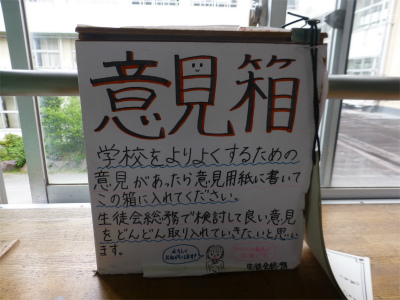 意見箱
学校をよりよくするための
意見があったら意見用紙に書いて
この箱に入れてください。
生徒会総務で検討して良い意見
をどんどん取り入れていきたいと思い
ます。